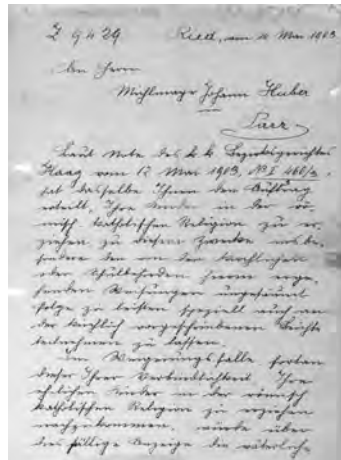 Z 9429 Ried, am 10 Mai 1903
An Herrn
Michlmayr Johann Huber
Parz
Laut Note des k. k. Bezirksgerichtes
Haag vom 12 Mai 1903, NoI 460/2
hat dasselbe Ihnen den Auftrag
erteilt, Ihre Kinder in der rö-
misch katholischen Religion zu er-
ziehen zu diesem Zwecke insbe-
sondere den von den kirchlichen
oder Schulbehörden hierin erge-
henden Weisungen ungesäumt
Folge zu leisten speziell auch an
der kirchlich vorgeschriebenen Beichte
teilnehmen zu lassen.
Im Weigerungsfalle fortan
dieser Ihrer Verbindlichkeit Ihre
ehelichen Kinder in der römisch
katholischen Religion zu erziehen
nachzukommen, würde über
des fällige Anzeige die väterliche